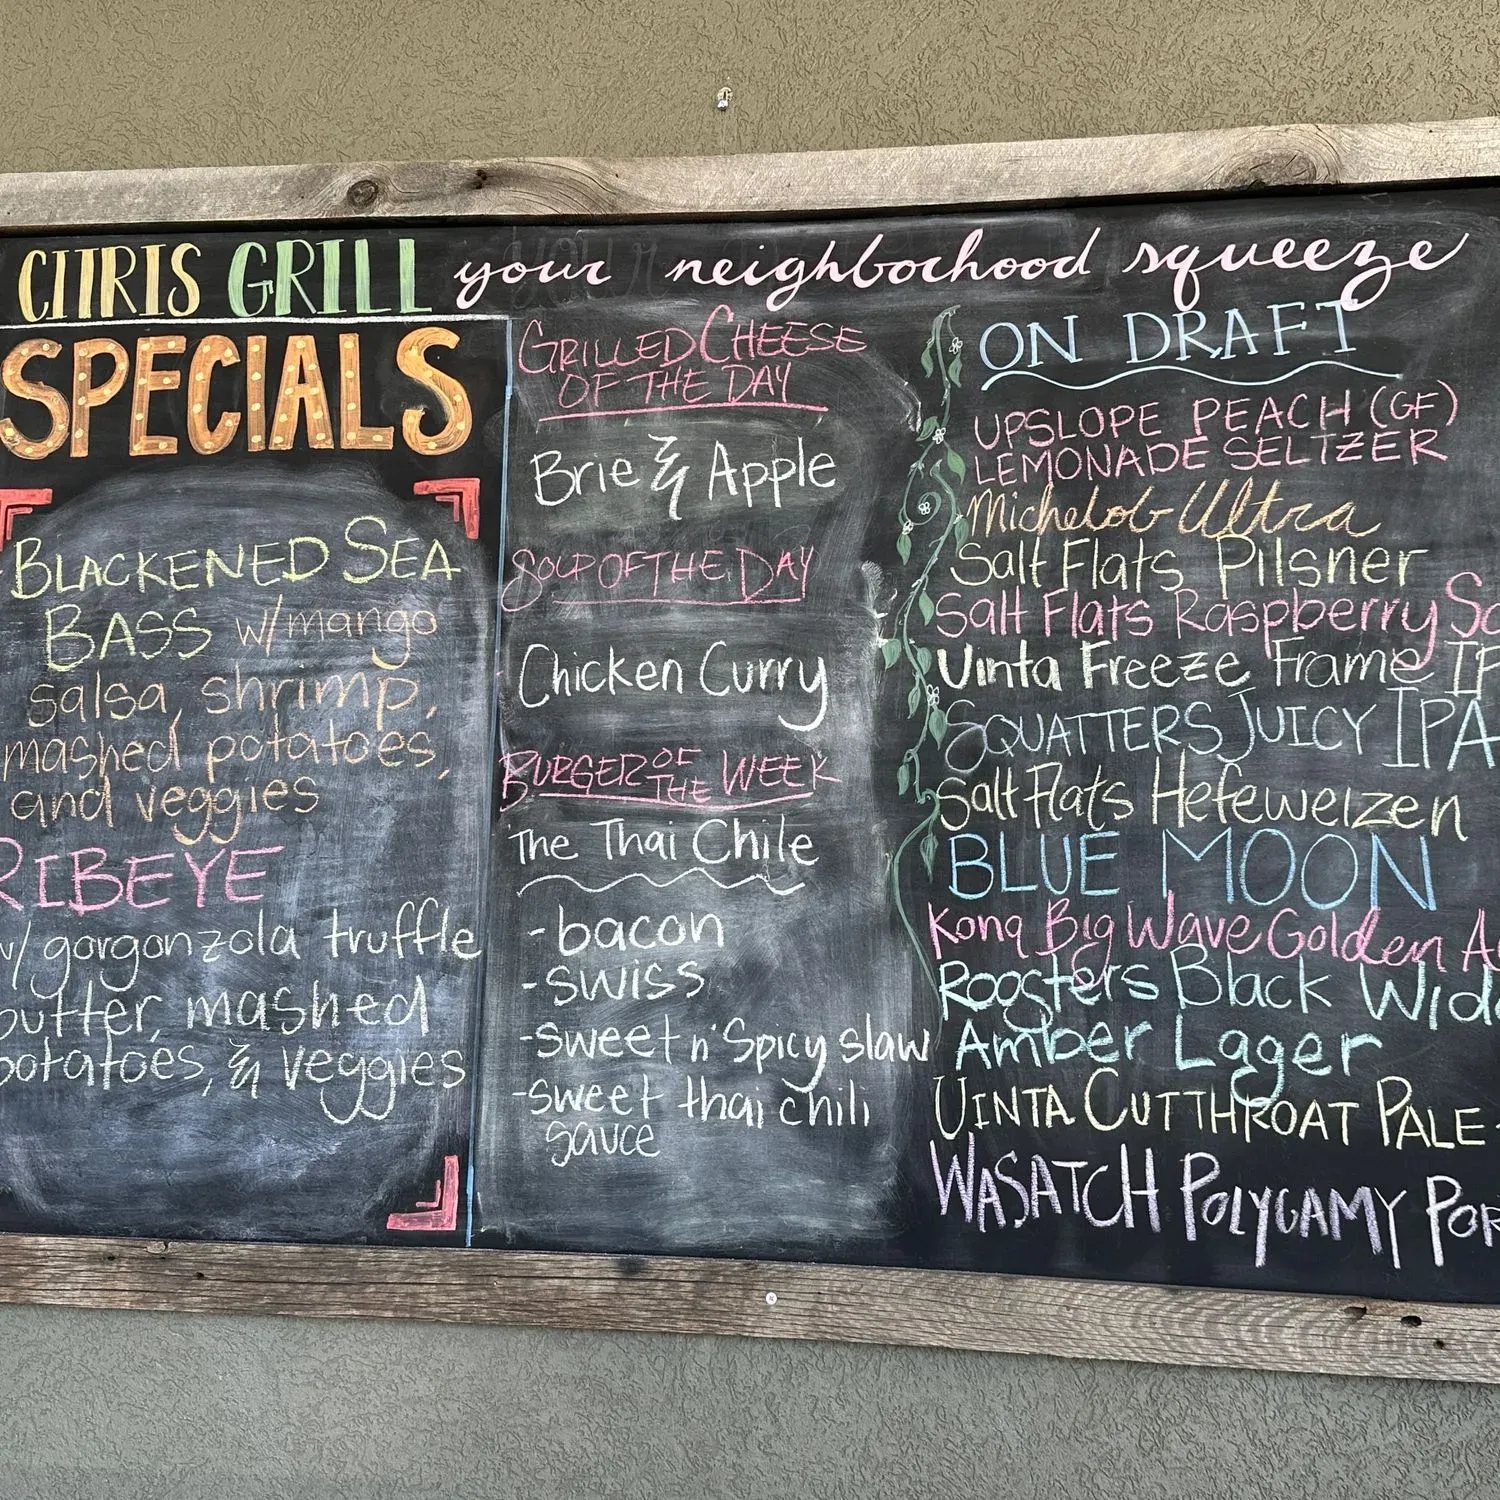 CITRIS GRILL your neighborhood squeeze
SPECIALS
BLACKENED SEA
BASS w/mango
salsa, shrimp,
mashed potatoes,
and veggies
RIBEYE
w/ gorgonzola truffle
butter, mashed
potatoes, & veggies
GRILLED CHEESE
OF THE DAY
Brie & Apple
SOUP OF THE DAY
Chicken Curry
BURGER OF THE WEEK
The Thai Chile
-bacon
-swiss
-sweet n' Spicy slaw
-sweet thai chili
sauce
ON DRAFT
UPSLOPE PEACH (GF)
LEMONADE SELTZER
Michelob Ultra
Salt Flats Pilsner
Salt Flats Raspberry
Uinta Freeze Frame IP
SQUATTERS JUICY IPA
Salt Flats Hefeweizen
BLUE MOON
Kona Big Wave Golden A
Roosters Black Wid
Amber Lager
UINTA CUTTHROAT PALE
WASATCH POLYGAMY POR